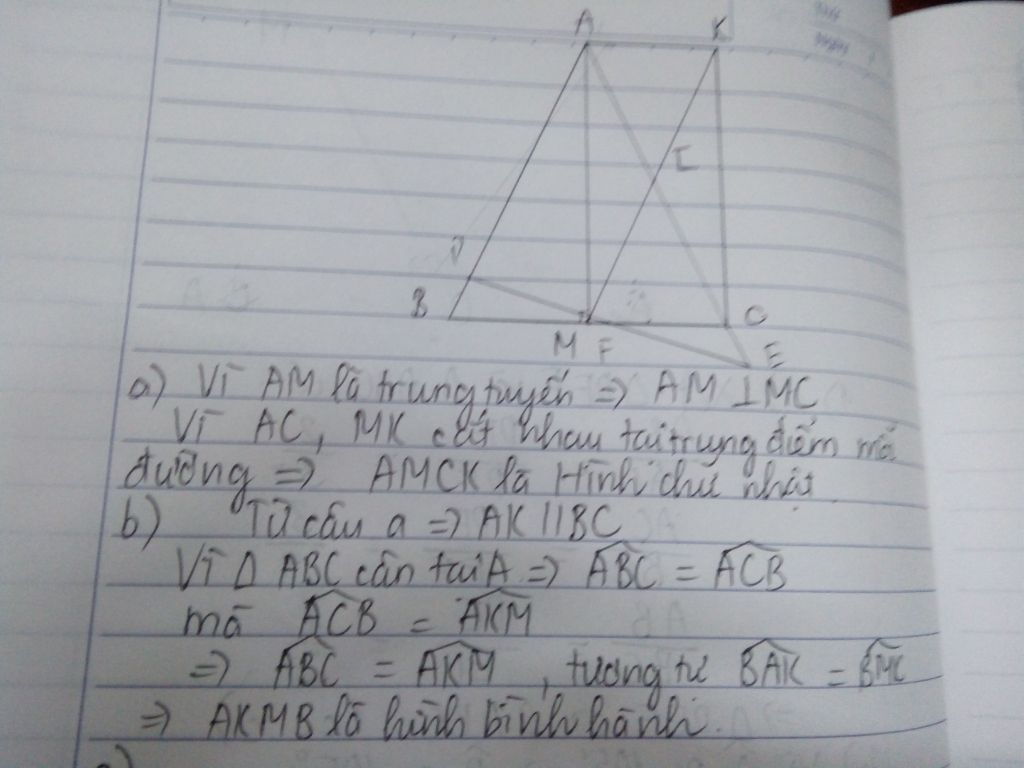 A K
I
D
B C
M F E
a) Vì AM là trung tuyến => AM ⊥ MC
Vì AC, MK cắt nhau tại trung điểm mỗi
đường => AMCK là Hình chữ nhật
b) Từ câu a => AK // BC
Vì Δ ABC cân tại A => ABC = ACB
mà ACB = AKM
=> ABC = AKM, tương tự BAK = BMK
=> AKMB là hình bình hành.